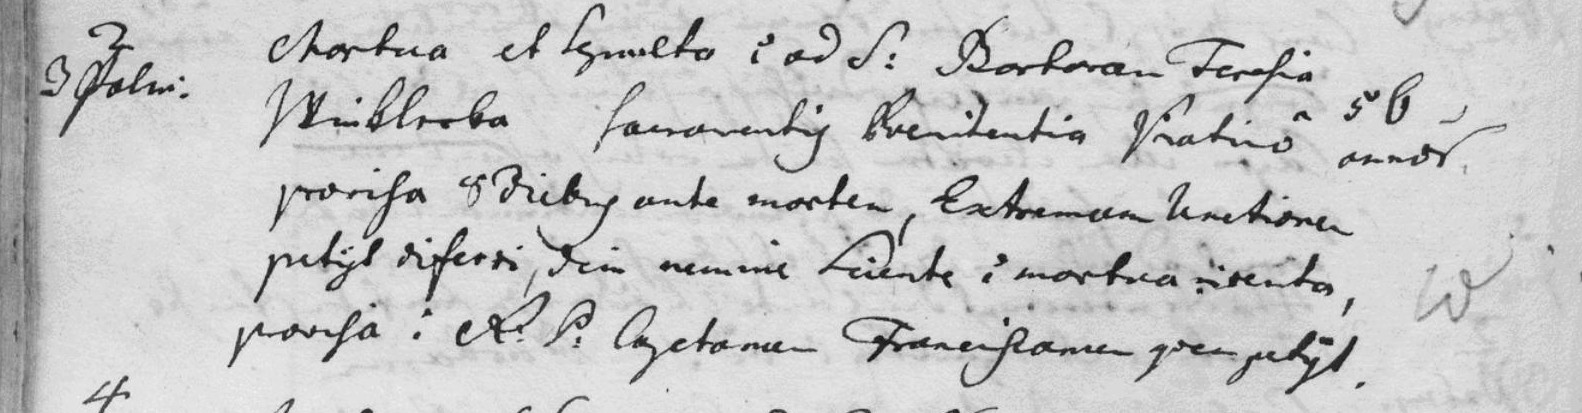 3 Mortua et sepulta ē ad S: Barbaram Teresia
Winklerka sacramentis Poenitentiæ 56 annor.
provisa 8 diebus ante mortem, Extremam Unctionem
petijt differi, dein nemine sciente ē mortua inventa,
provisa ē R. P. Cajetanum Franciscanum quem petijt.
4